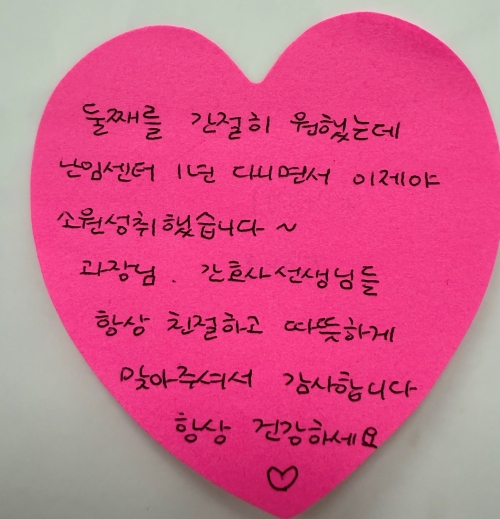 둘째를 간절히 원했는데
난임센터 1년 다니면서 이제야
소원성취했습니다~
과장님. 간호사선생님들
항상 친절하고 따뜻하게
맞아주셔서 감사합니다
항상 건강하세요
♡